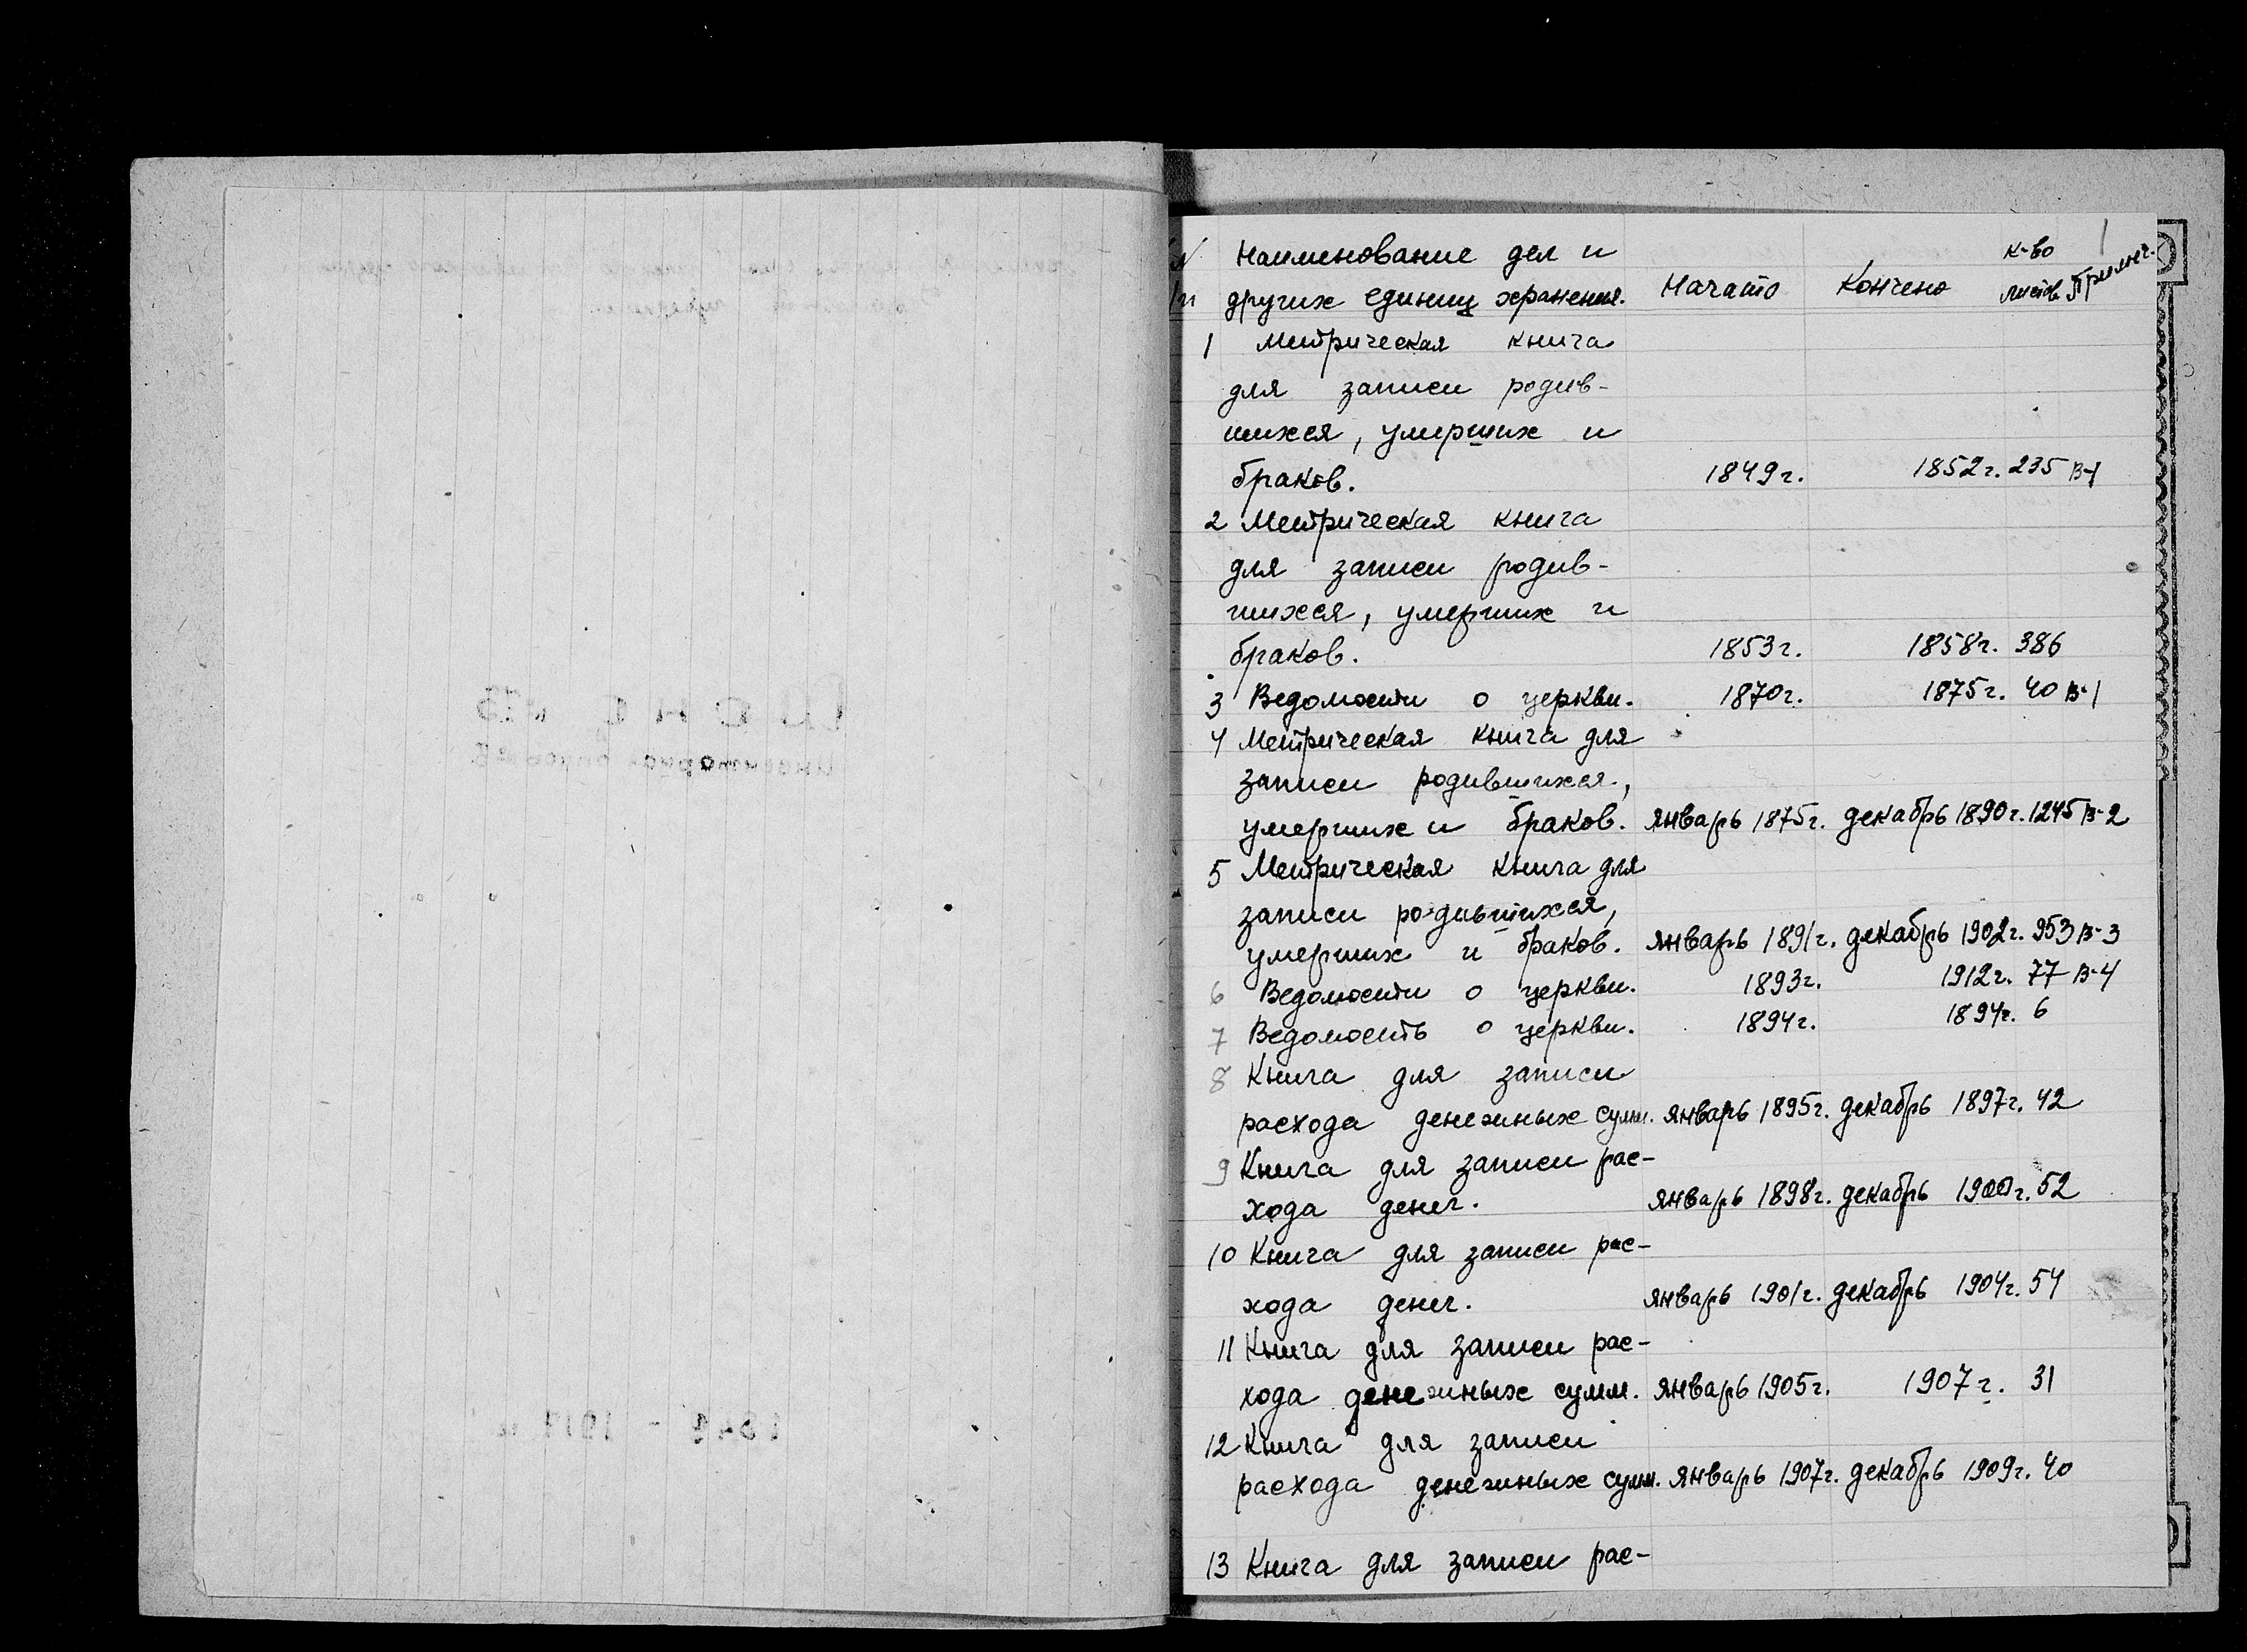 1
N Наименование дел и Начато Кончено к-во Примеч.
/п других единиц хранения. листов
1 Метрическая книга
для записи родив-
шихся, умерших и
браков. 1849г. 1852г. 235 В-1
2 Метрическая книга
для записи родив-
шихся, умерших и
браков. 1853г. 1858г. 386
3 Ведомости о церкви. 1870г. 1875г. 40 В-1
4 Метрическая книга для
записи родившихся,
умерших и браков. январь 1875г. декабрь 1890г. 1245 В-2
5 Метрическая книга для
записи родившихся,
умерших и браков. январь 1891г. декабрь 1902г. 953 В-3
6 Ведомости о церкви. 1893г. 1912г. 77 В-4
7 Ведомость о церкви. 1894г. 1894г. 6
8 Книга для записи
расхода денежных сумм. январь 1895г. декабрь 1897г. 42
9 Книга для записи рас-
хода денег. январь 1898г. декабрь 1900г. 52
10 Книга для записи рас-
хода денег. январь 1901г. декабрь 1904г. 54
11 Книга для записи рас-
хода денежных сумм. январь 1905г. 1907г. 31
12 Книга для записи
расхода денежных сумм. январь 1907г. декабрь 1909г. 40
13 Книга для записи рас-